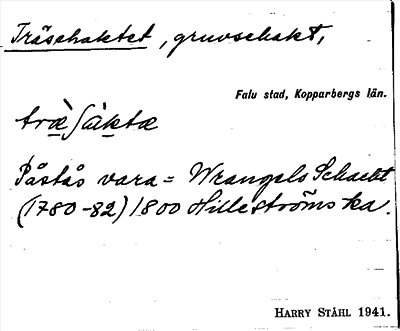 Träschaktet, gruvschakt,
Falu stad, Kopparbergs län.
træ̀ʃàktæ
Påstås vara = Wrangels Schacht
(1780-82) 1800 Hilleströms ka.
HARRY STÅHL 1941.